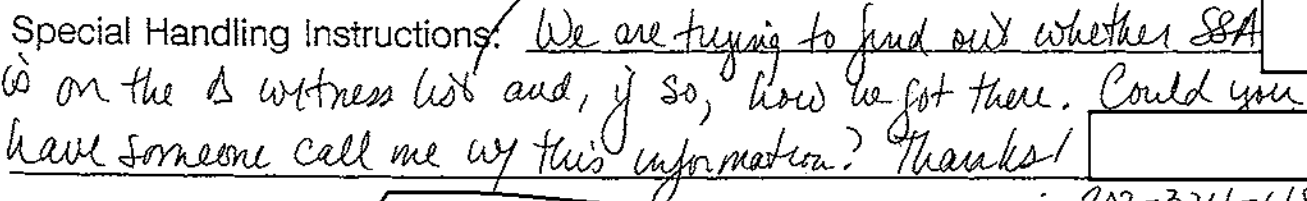 Special Handling Instructions: We are trying to find out whether SSA
is on the Δ witness list and, if so, how he got there. Could you
have someone call me w/ this information? Thanks!